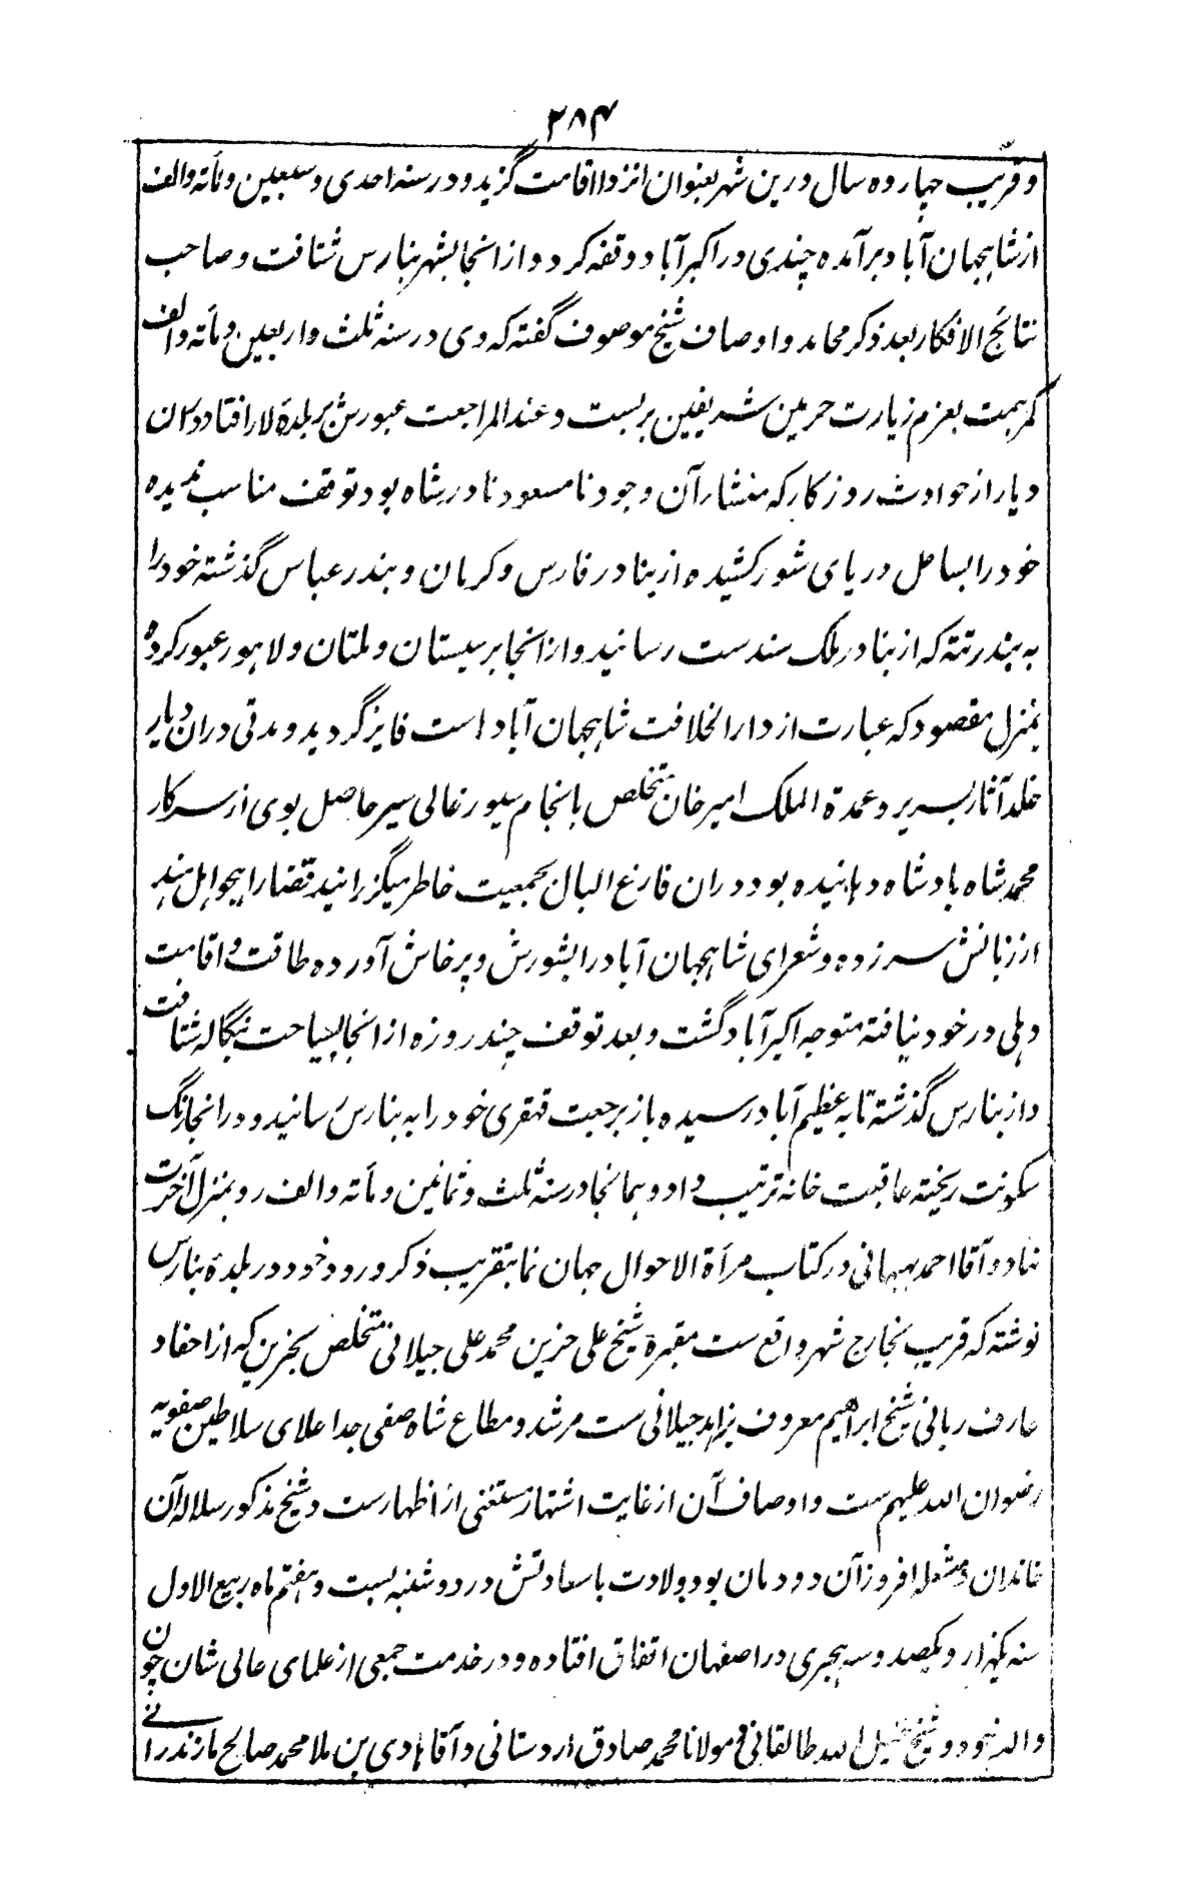 ۲۸۴
و قریب چهارده سال درین شهر بعنوان انزوا اقامت گزید و در سنه احدی و سبعین و مأته والف
از شاهجهان آباد برآمده چندی در اکبرآباد وقفه کرد و از انجا بشهر بنارس شتافت و صاحب
نتائج الافکار بعد ذکر محامد و اوصاف شیخ موصوف گفته که وی در سنه ثلث و اربعین و مأته والف
کمر همت بعزم زیارت حرمین شریفین بربست و عند المراجعت عبورش بر بلدهٔ لار افتاد و آن
دیار از حوادث روزگار که منشار آن وجود نامسعود نادر شاه بود توقف مناسب ندیده
خود را بساحل دریای شور کشیده از بنادر فارس و کرمان و بندر عباس گذشته خود را
به بندر تته که از بنادر ملک سندست رسانید و از انجا بر سیستان و ملتان و لاهور عبور کرده
بمنزل مقصود که عبارت از دارالخلافت شاهجهان آباد است فایز گردید و مدتی دران دیار
خلد آثار بسر برد و عمدة الملک امیر خان متخلص بانجام سیورغالی سیر حاصل بوی از سرکار
محمد شاه بادشاه دهانیده بود دران فارغ البال بجمعیت خاطر میگزرانید قضارا هجو اهل هند
از زبانش سر زده و شعرای شاهجهان آباد را بشورش و پرخاش آورده طاقت و اقامت
دهلی در خود نیافته متوجه اکبرآباد گشت و بعد توقف چند روزه از انجا بسیاحت بنگاله شتافت
و از بنارس گذشته تا به عظیم آباد رسیده باز برجعت قهقری خود را به بنارس رسانید و در انجا رنگ
سکونت ریخته عاقبت خانه ترتیب داد و همانجا در سنه ثلث و ثمانین و مأته والف رو بمنزل آخرت
نهاد و آقا احمد بهبهانی در کتاب مرآة الاحوال جهان نما بتقریب ذکر ورود خود در بلدهٔ بنارس
نوشته که قریب بخارج شهر واقع ست مقبرهٔ شیخ علی حزین محمد علی جیلانی متخلص بحزین که از احفاد
عارف ربانی شیخ ابراهیم معروف بزاهد جیلانی ست مرشد و مطاع شاه صفی جد اعلای سلاطین صفویه
رضوان الله علیهم ست و اوصاف آن از غایت اشتهار مستغنی از اظهارست و شیخ مذکور سلالهٔ آن
خاندان و مشعله افروز آن دودمان بود ولادت با سعادتش در دوشنبه بست و هفتم ماه ربیع الاول
سنه یکهزار و یکصد و سه هجری در اصفهان اتفاق افتاده و در خدمت جمعی از علمای عالی شان چون
والد خود و شیخ خلیل الله طالقانی و مولانا محمد صادق اردستانی و آقا هادی بن ملا محمد صالح مازندرانی